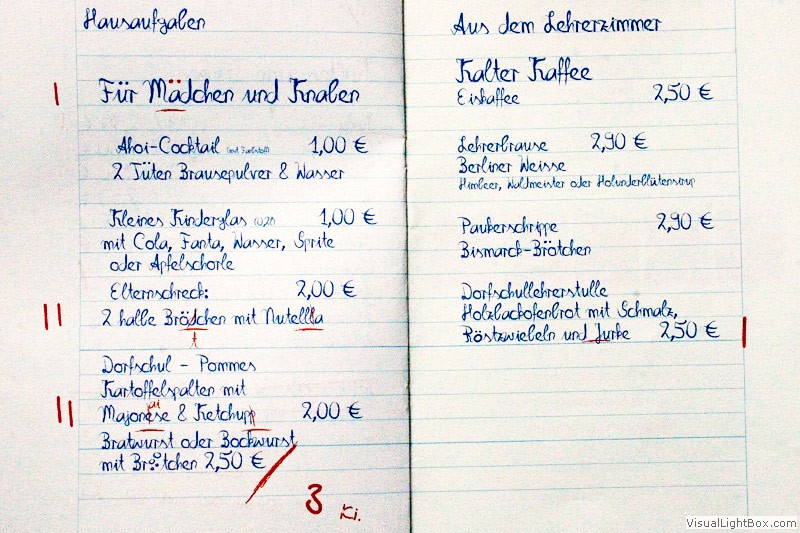 Hausaufgaben
I Für Mädchen und Knaben
Ahoi-Cocktail (mit Farbstoff) 1,00 €
2 Tüten Brausepulver & Wasser
Kleines Kinderglas 0,2l 1,00 €
mit Cola, Fanta, Wasser, Sprite
oder Apfelschorle
Elternschreck: 2,00 €
II 2 halbe Brödchen mit Nutellla
t
Dorfschul - Pommes
Kartoffelspalten mit
ai
II Majonese & Ketchupp 2,00 €
Bratwurst oder Bockwurst
mit Brötchen 2,50 €
3 Ki.
Aus dem Lehrerzimmer
Kalter Kaffee
Eiskaffee 2,50 €
Lehrerbrause 2,90 €
Berliner Weisse
Himbeer, Waldmeister oder Holunderblütensirup
Paukerschrippe 2,90 €
Bismarck-Brötchen
Dorfschullehrerstulle
Holzbackofenbrot mit Schmalz,
Röstzwiebeln und Jurke 2,50 € I
VisualLightBox.com